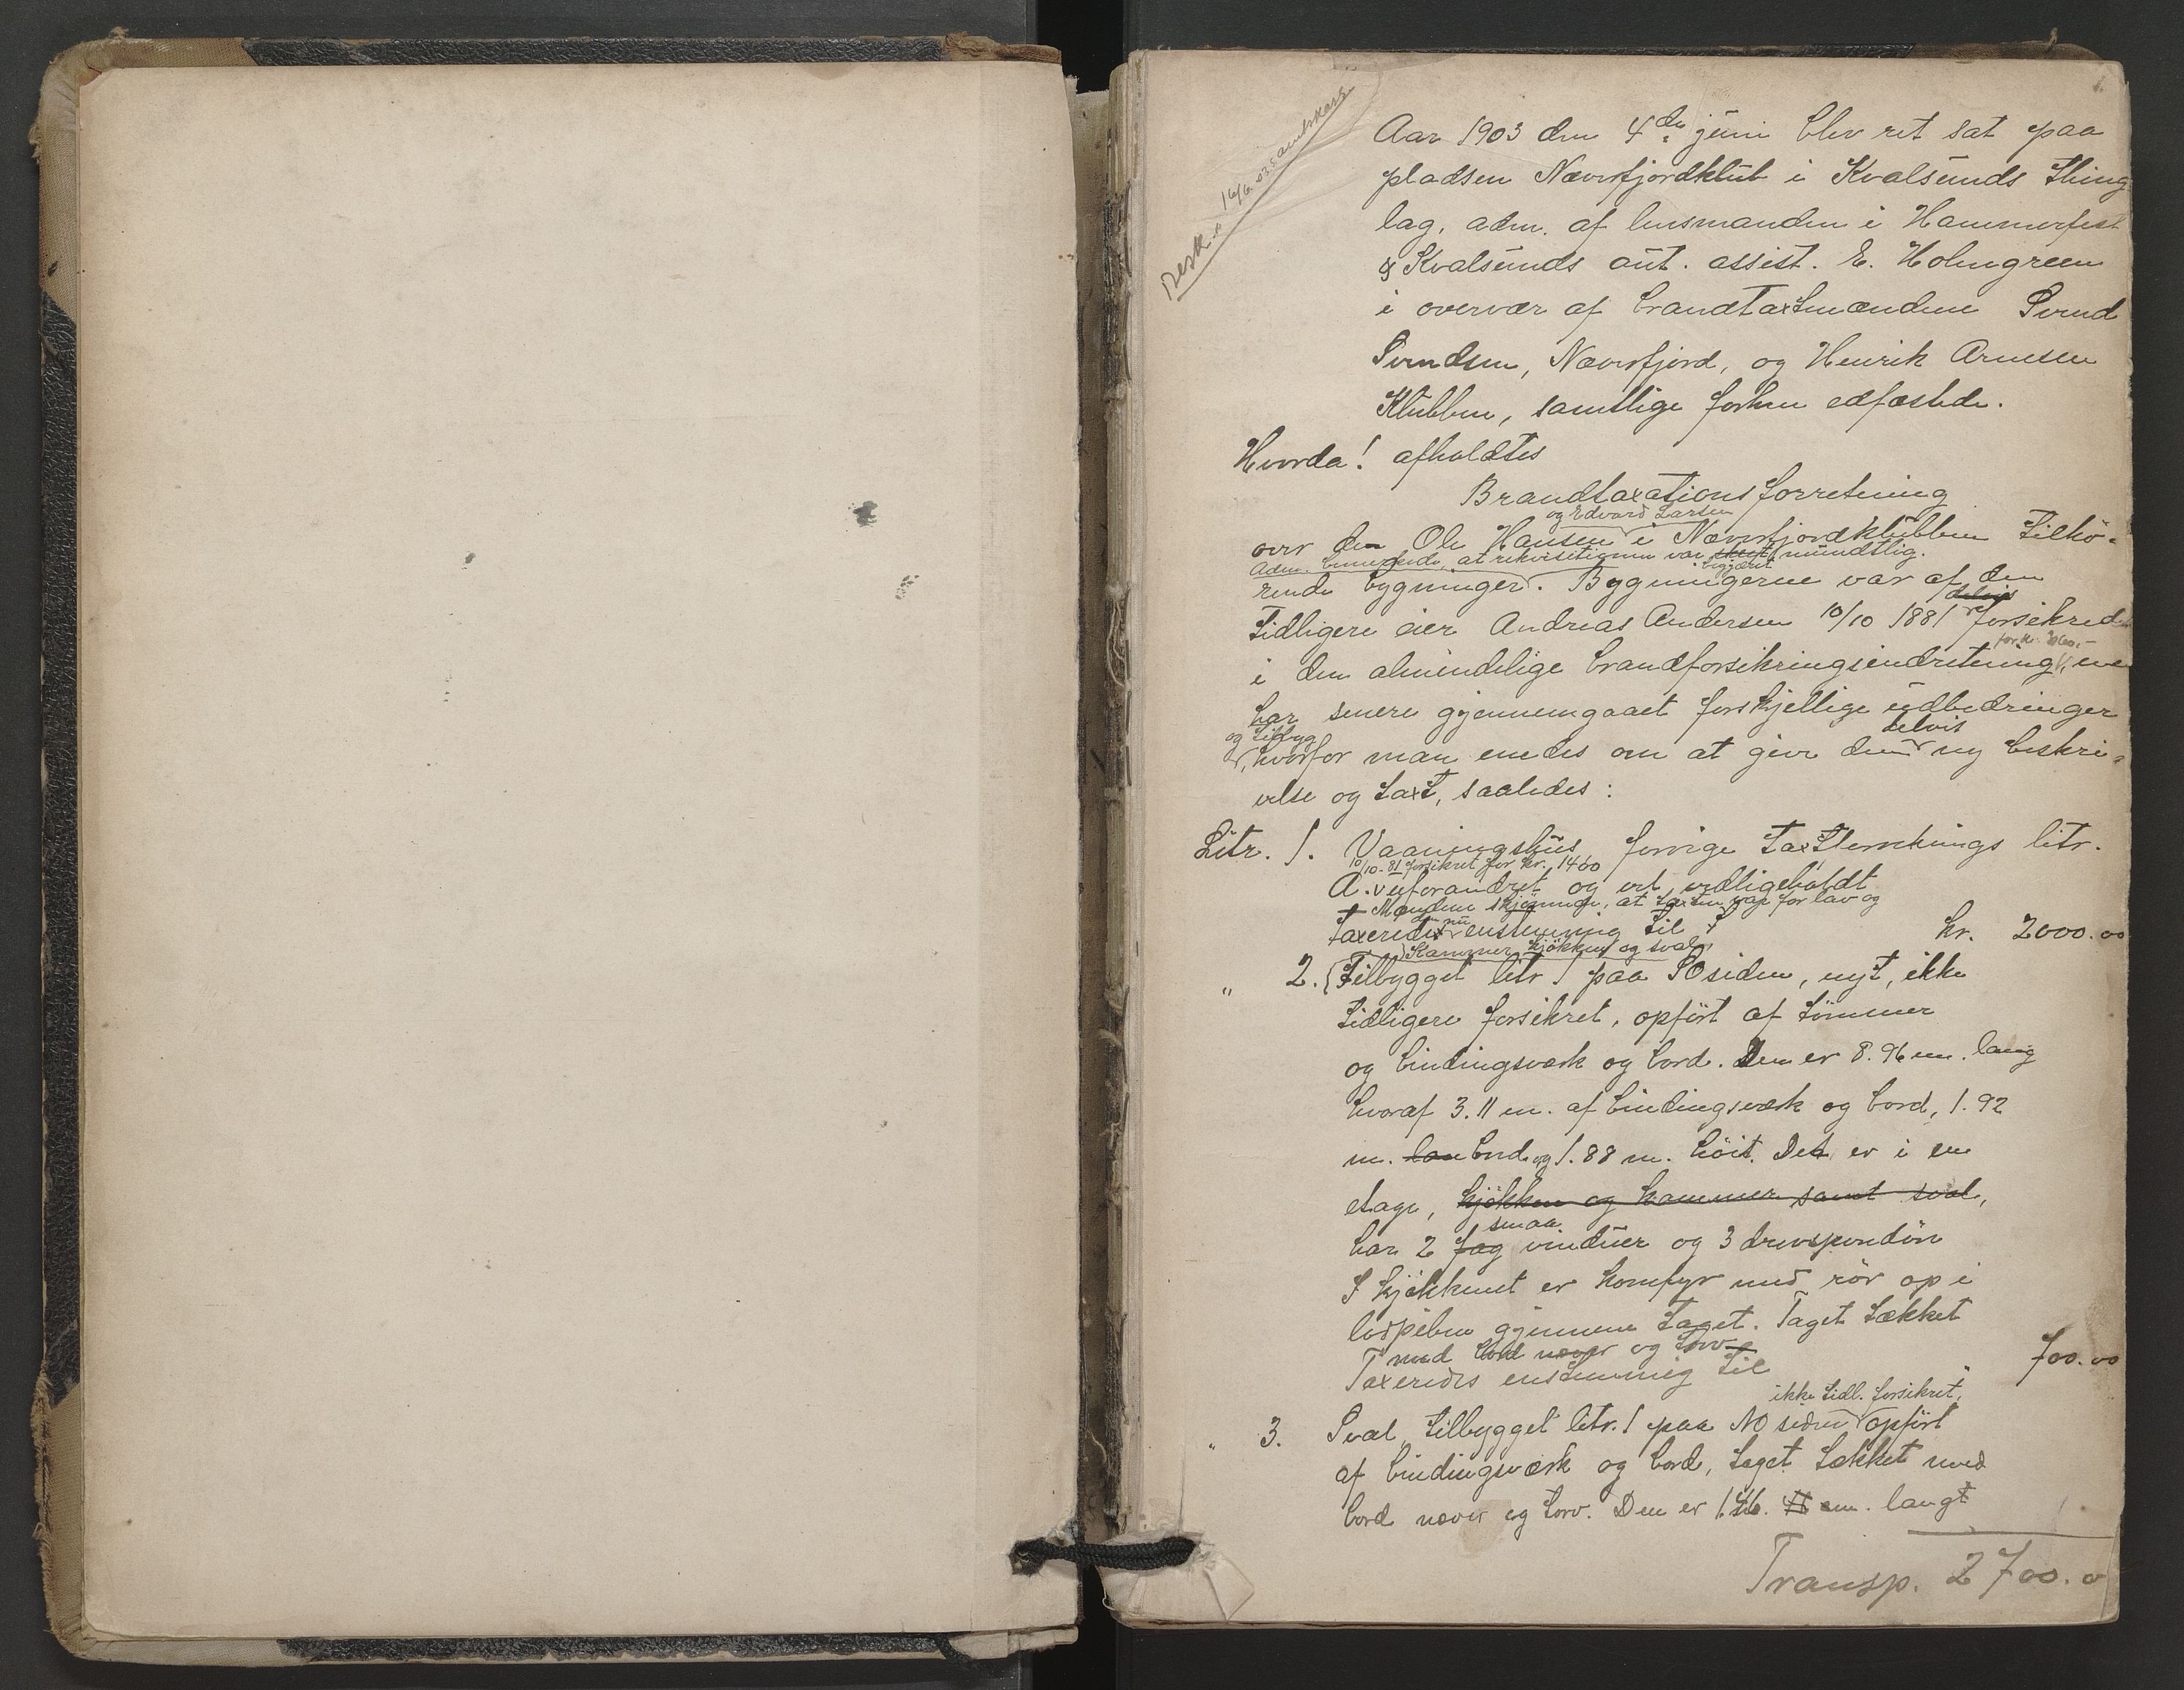 Besk. 16/6 03 s. amtskass.
Aar 1903 den 4de juni blev ret sat paa
pladsen Næverfjordklub i Kvalsunds Thing
lag, adm. af lensmanden i Hammerfest
& Kvalsunds aut. assist. E. Holmgreen
i overvær af brandtaxtmændene Svend
Svendsen, Næverfjord, og Henrik Arnesen
Klubben, samtlige forhen edfæstede.
Hvorda! afholdtes
Brandtaxationsforretning
og Edvard Larsen
over den Ole Hansen i Næverfjordklubben Tilhö-
Adm. bemerkede, at rekvisitionen var skrift mundtlig.
begjæret
rende bygninger. Bygningerne var af den
delvis
Tidligere eier Andreas Andersen 10/10 1881 forsikred
for kr.
i den almindelige brandforsikringsindretning, men
har senere gjennemgaaet forskjellige udbedringer
og tilbyg delvis
, hvorfor man enedes om at give dem ny beskri-
velse og taxt, saaledes:
Litr. 1. Vaaningshus, forrige Taxtberetnings litr.
10/10-81 forsikret for kr. 1460
A. uforandret og vel vedligeholdt
Mændene skjønner, at taxten var for lav og
den nu
Taxeredes enstemmig til kr. 2000.00
Kammer kjökken og sval
" 2. Tilbygget litr 1 paa SOsiden, nyt, ikke
tidligere forsikret, opfört af tömmer
og bindingsværk og bord. Den er 8.96 m. lang
hvoraf 3.11 m. af bindingsværk og bord, 1.92
m. lan bred og 1.88 m. höit. Det er i en
etage, kjökken og kammer samt sval,
smaa
har 2 fag vinduer og 3 drevspeildör
I kjökkenet er komfyr med rör op i
lospiben gjennem taget. Taget tækket
med bord never og torv
Taxeredes enstemmig til " 700.00
ikke tidl. forsikret,
" 3. Sval tilbygget litr. 1 paa NO siden opfört
af bindingsværk og bord, taget tækket med
bord never og torv. Den er m. langt
Transp. 2700.0